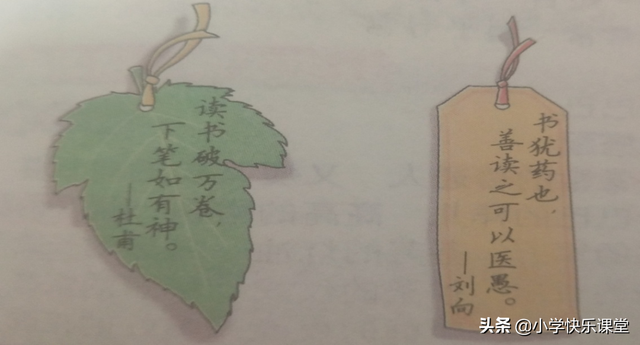 读书破万卷，
下笔如有神。
——杜甫
书犹药也，
善读之可以医愚。
——刘向
头条 @小学快乐课堂